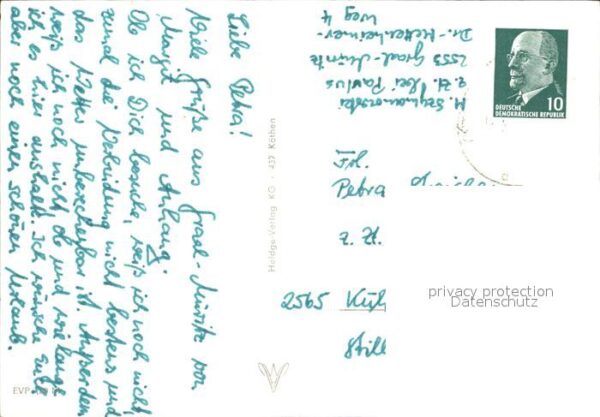 Liebe Petra!
Viele Grüße aus Graal-Müritz von
Margit und Anhang.
Ob ich Dich besuche, weiß ich noch nicht
zumal die Verbindung nicht bestens und
das Wetter unberechenbar ist. Außerdem
weiß ich noch nicht ob und wie lange
ich es hier aushalte. Ich wünsche Euch
aber noch einen schönen Urlaub.
M.
z. Zt. bei Paulus
2553 Graal-Müritz
Weg 4
DEUTSCHE
DEMOKRATISCHE REPUBLIK
10
Frl.
Petra
z. Zt.
2565 Küh
Still
Heldge-Verlag KG · 437 Köthen
EVP
privacy protection
Datenschutz